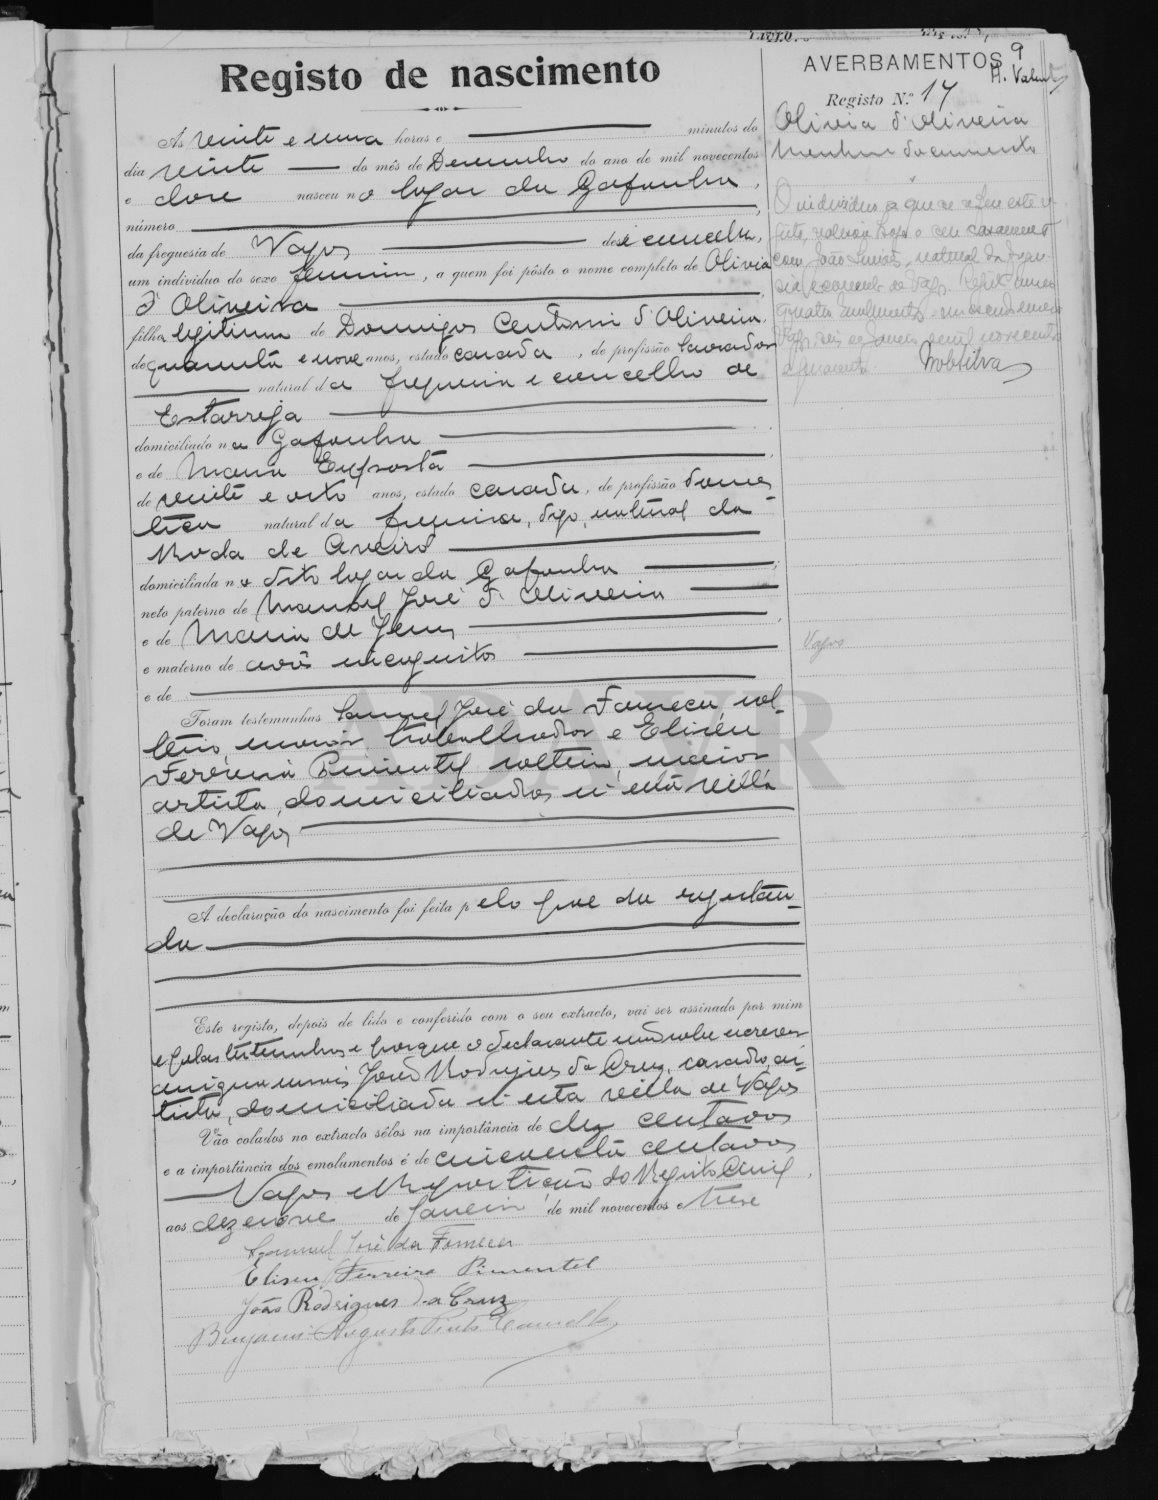 Registo de nascimento
Às vinte e uma horas e minutos do
dia vinte do mês de Dezembro do ano de mil novecentos
e doze nasceu no lugar da Gafanha,
número
da freguesia de Vagos deste concelho,
um indivíduo do sexo feminino, a quem foi pôsto o nome completo de Olivia
d'Oliveira
filha legitima de Domingos d'Oliveira,
de quarenta e nove anos, estado casado, de profissão lavrador
natural da freguesia e concelho de
Estarreja
domiciliado na Gafanha
e de Maria Exposta
de vinte e oito anos, estado casada, de profissão domes-
tica natural da freguesia, digo, natural da
Roda de Aveiro
domiciliada no dito lugar da Gafanha
neto paterno de Manuel José d'Oliveira
e de Maria de Jesus
e materno de avós incognitos
e de
Foram testemunhas Samuel José da Fonseca, sol-
teiro, maior, trabalhador e Eliseu
Ferreira Pimentel, solteiro, maior
artista, domiciliados n'esta villa
de Vagos
A declaração do nascimento foi feita pelo pae da registan-
da
Este registo, depois de lido e conferido com o seu extracto, vai ser assinado por mim
e pelas testemunhas e porque o declarante não sabe escrever
assigna João Rodrigues da Cruz, casado, ar-
tista, domiciliado n'esta villa de Vagos
Vão colados no extracto sêlos na importância de dez centavos
e a importância dos emolumentos é de cincoenta centavos
Vagos e Repartição do Registo Civil,
aos dezenove de Janeiro de mil novecentos e treze
Samuel José da Fonseca
Eliseu Ferreira Pimentel
João Rodrigues da Cruz
Benjamim Augusto Pinto
AVERBAMENTOS
9
Registo N.º 17
Olivia d'Oliveira
Nenhum documento
O individuo a que se refere este re-
gisto, o seu casamento
com João, natural da fregue-
sia e concelho de Vagos.
Vagos
ADAVR